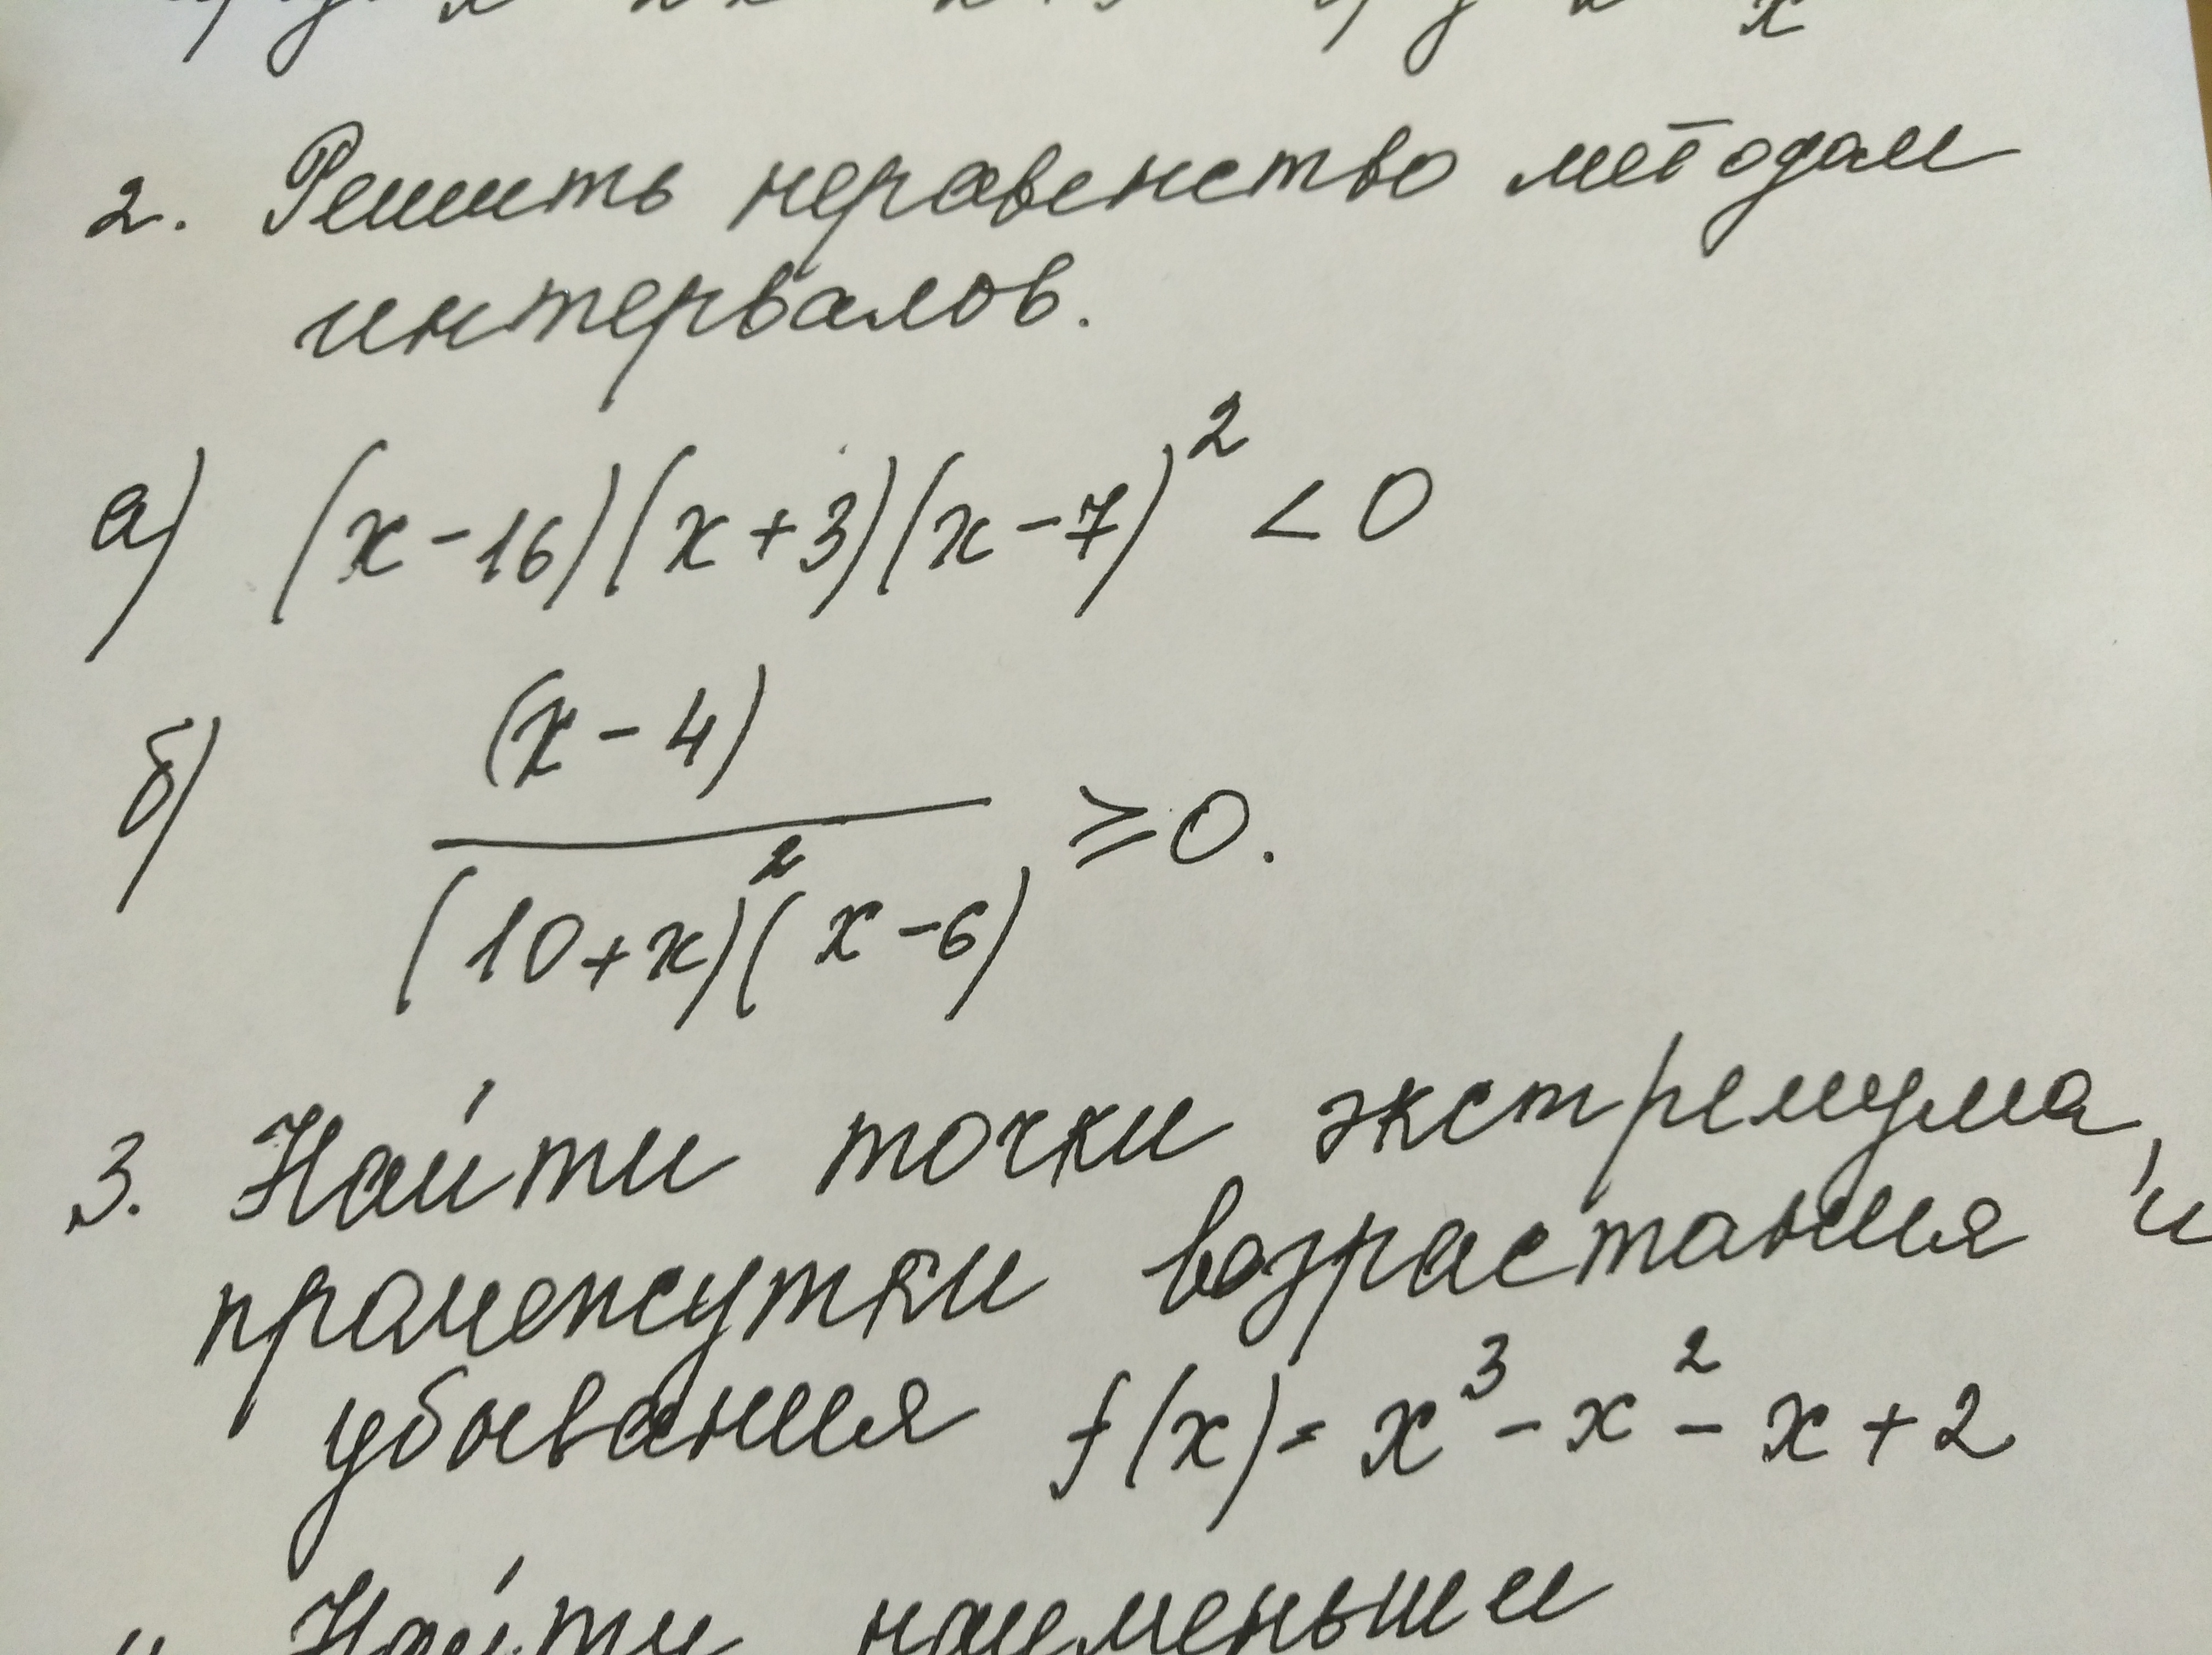 2. Решить неравенство методом
интервалов.
а) (x-16)(x+3)(x-7)² < 0
б) (x-4)
(10+x)²(x-6) ≥ 0.
3. Найти точки экстремума,
промежутки возрастания и
убывания f(x) = x³ - x² - x + 2
Найти наименьши